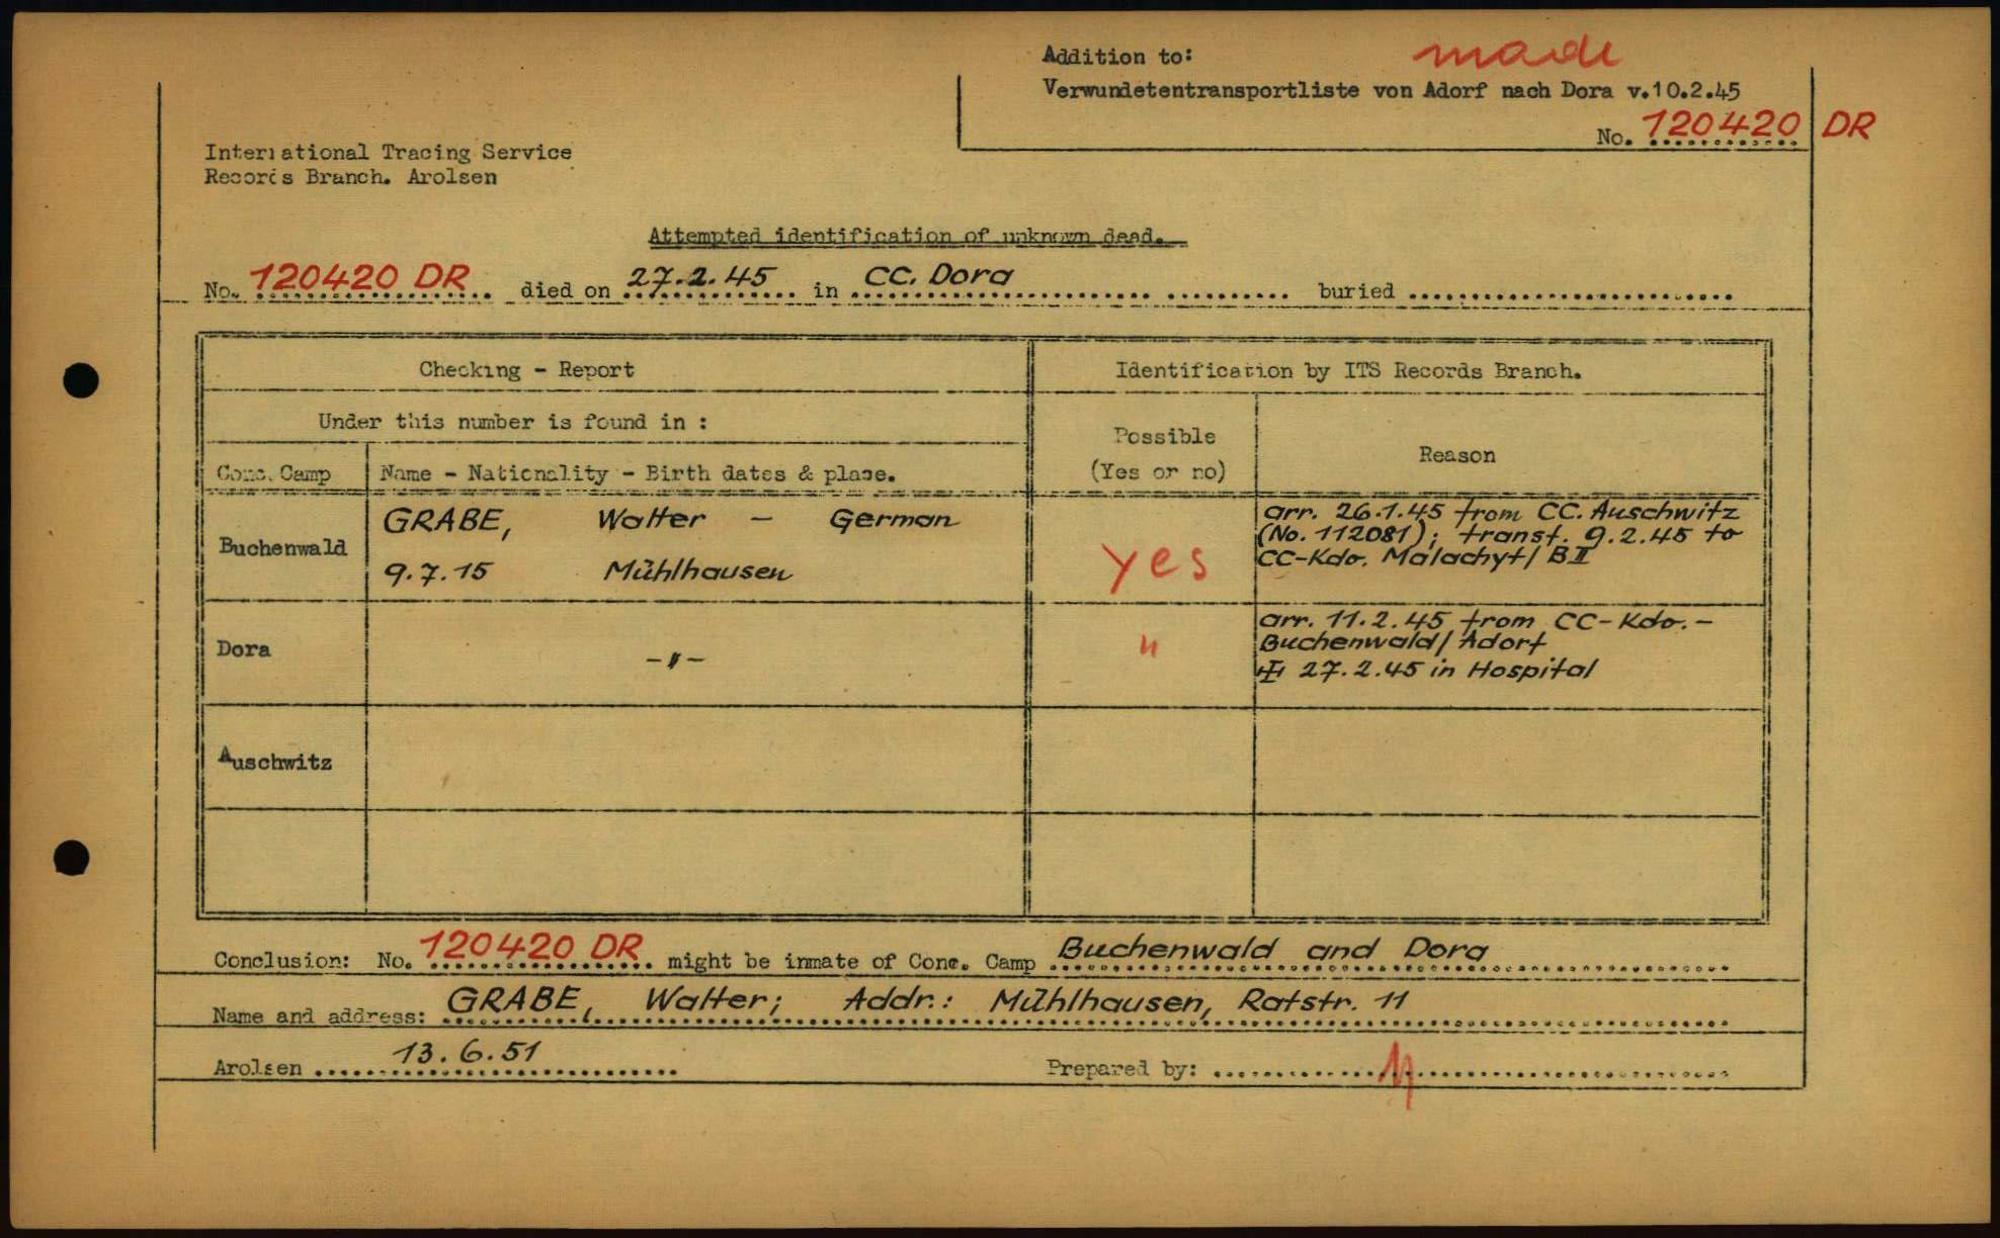 Addition to: made
Verwundetentransportliste von Adorf nach Dora v.10.2.45
No. 120420 DR
International Tracing Service
Records Branch. Arolsen
Attempted identification of unknown dead.
No. 120420 DR died on 27.2.45 in CC. Dora buried
Checking - Report
Identification by ITS Records Branch.
Under this number is found in :
Possible
(Yes or no)
Reason
Conc. Camp
Name - Nationality - Birth dates & place.
Buchenwald
GRABE, Walter - German
9.7.15 Mühlhausen
yes
arr. 26.1.45 from CC. Auschwitz
(No. 112081); transf. 9.2.45 to
CC-Kdo. Malachyt/ B II
Dora
-"-
"
arr. 11.2.45 from CC-Kdo.-
Buchenwald/ Adorf
27.2.45 in Hospital
Auschwitz
Conclusion: No. 120420 DR might be inmate of Conc. Camp Buchenwald and Dora
Name and address: GRABE, Walter; Addr.: Mühlhausen, Ratstr. 11
Arolsen 13.6.51
Prepared by: